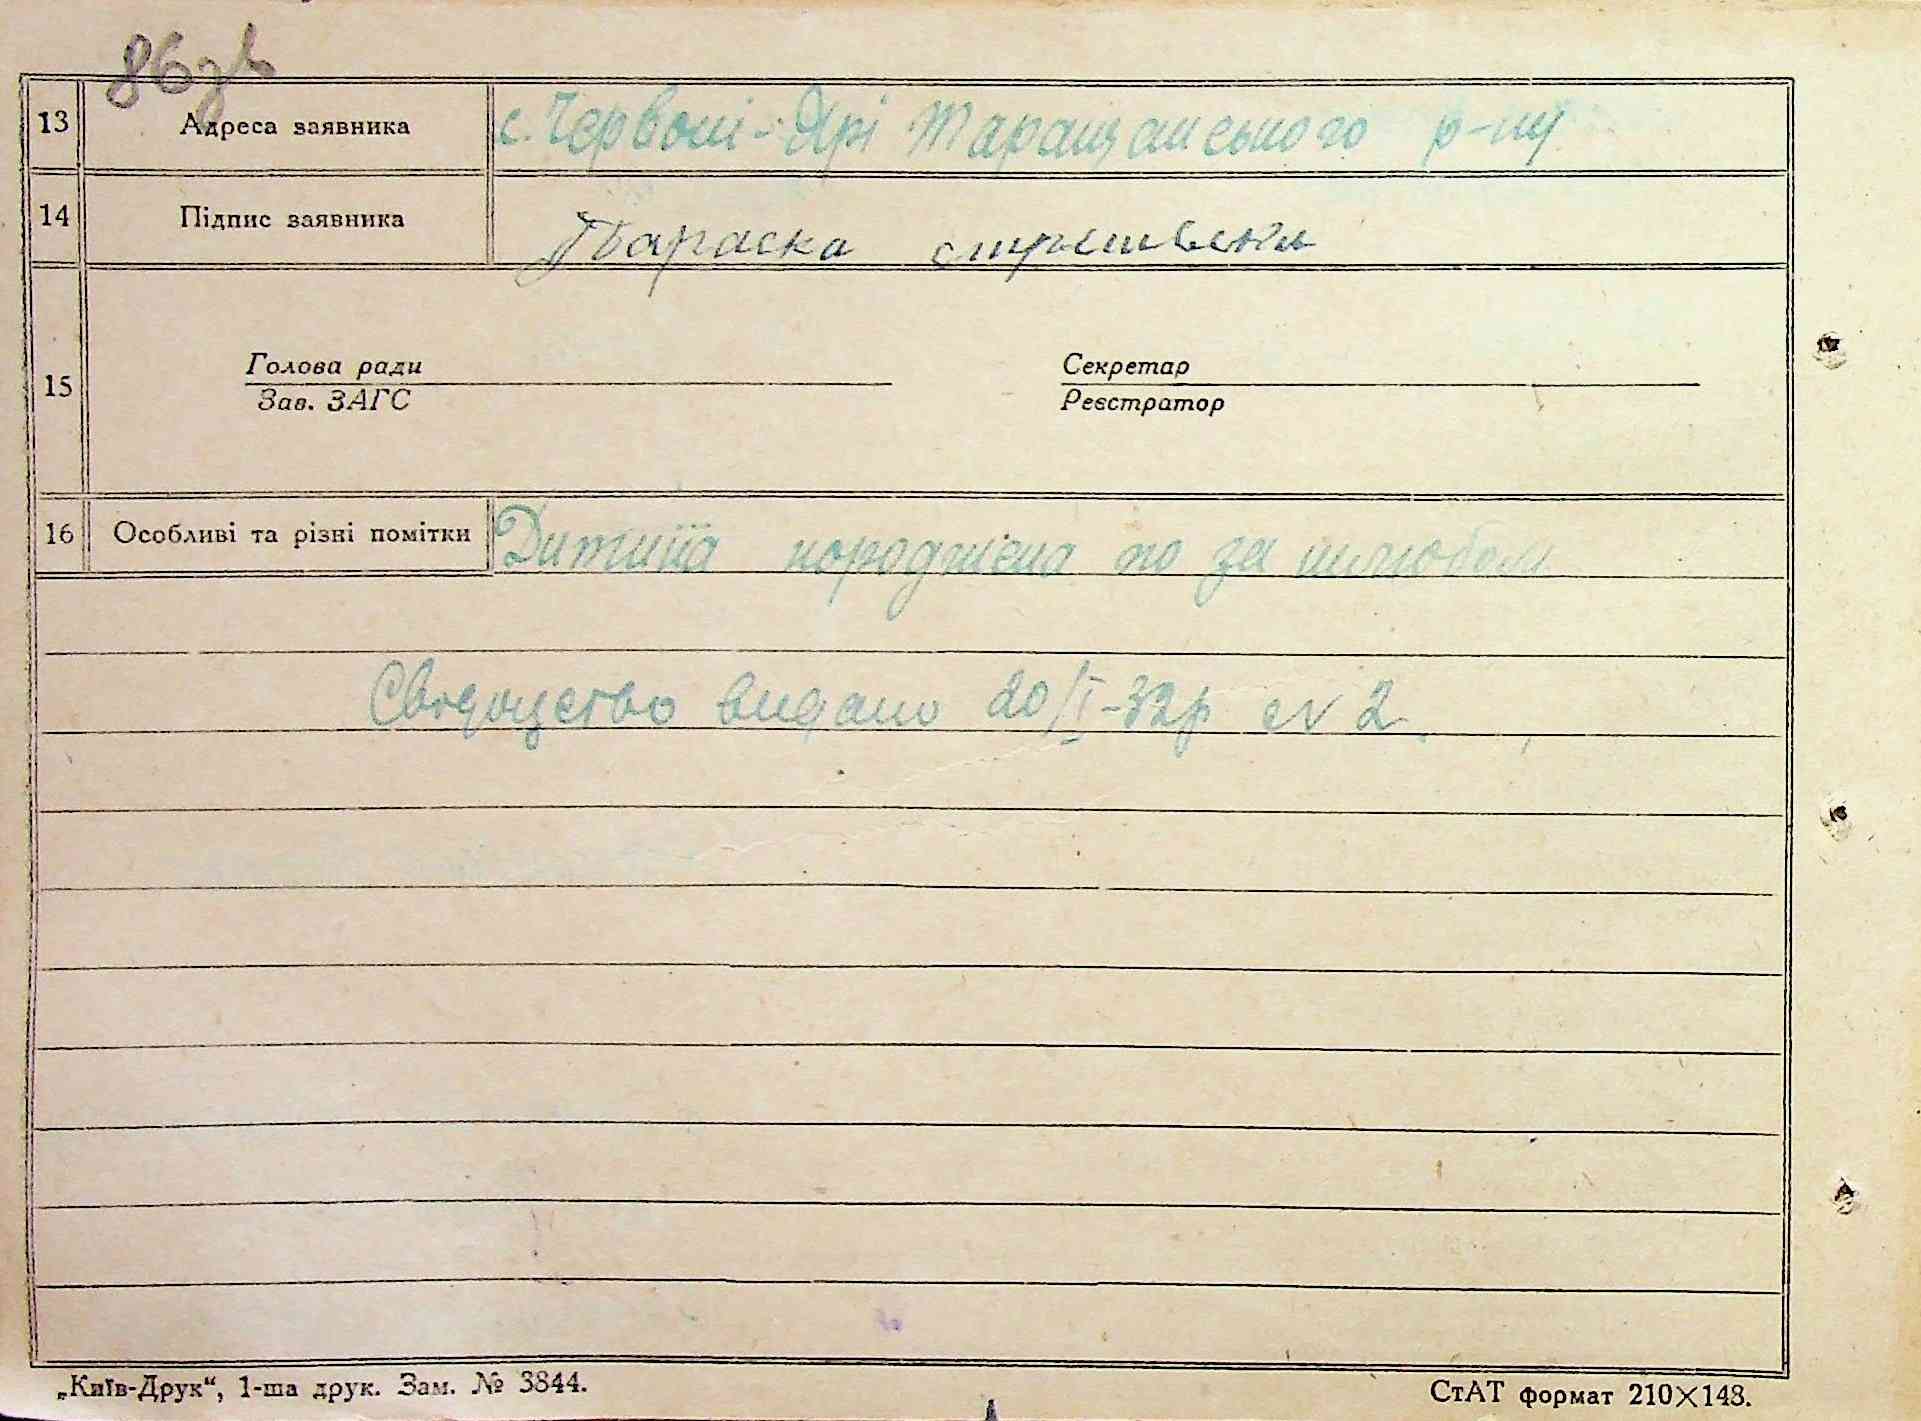 86зв
13 Адреса заявника с. Червоні-Ярі Таращанського р-ну
14 Підпис заявника Параска
15 Голова ради Секретар
Зав. ЗАГС Реєстратор
16 Особливі та різні помітки Дитина породжена по за шлюбом
Свидоцство видано 20/I-32р № 2.
„Київ-Друк“, 1-ша друк. Зам. № 3844.
СтАТ формат 210×148.